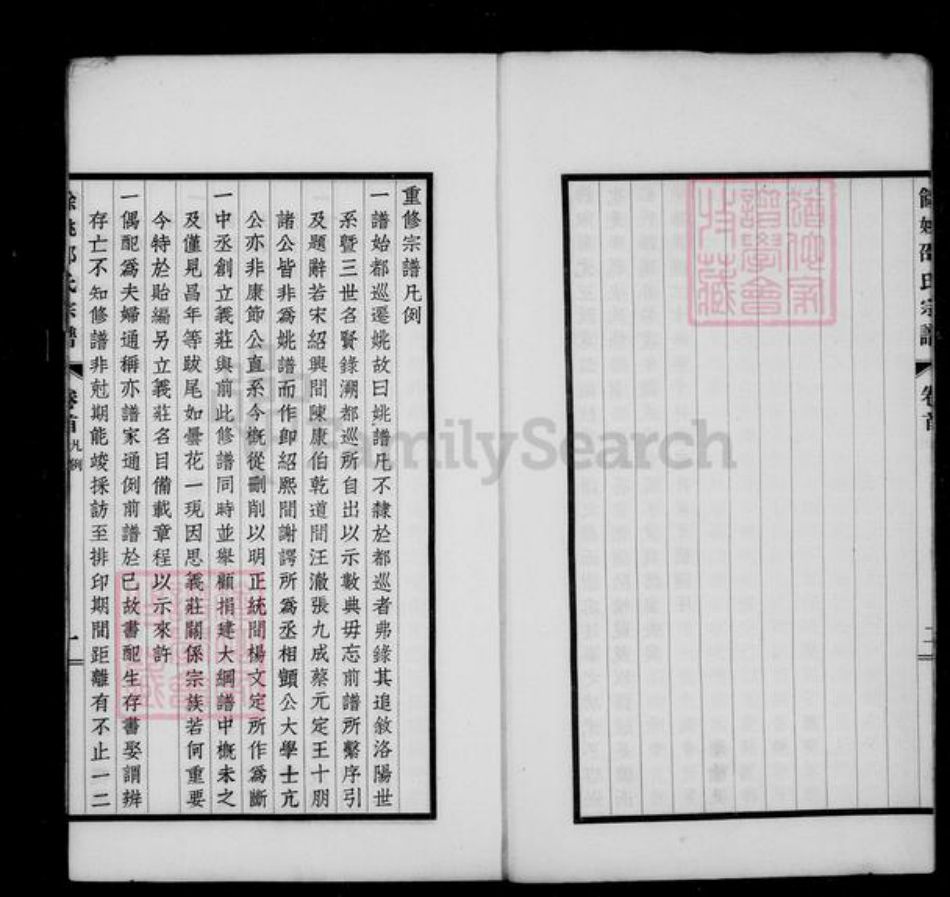 餘姚邵氏宗譜
卷首
二
重修宗譜凡例
一譜始都巡遷姚故曰姚譜凡不隸於都巡者弗錄其追敘洛陽世
系曁三世名賢錄溯都巡所自出以示數典毋忘前譜所繫序引
及題辭若宋紹興間陳康伯乾道間汪澈張九成蔡元定王十朋
諸公皆非爲姚譜而作卽紹熙間謝諤所爲丞相顗公大學士亢
公亦非康節公直系今槪從刪削以明正統間楊文定所作爲斷
一中丞創立義莊與前此修譜同時並舉顧捐建大綱譜中槪未之
及僅見昌年等跋尾如曇花一現因思義莊關係宗族若何重要
今特於貽編另立義莊名目備載章程以示來許
一偶配爲夫婦通稱亦譜家通例前譜於已故書配生存書娶謂辨
存亡不知修譜非尅期能竣採訪至排印期間距離有不止一二
餘姚邵氏宗譜
卷首 凡例
一
FamilySearch